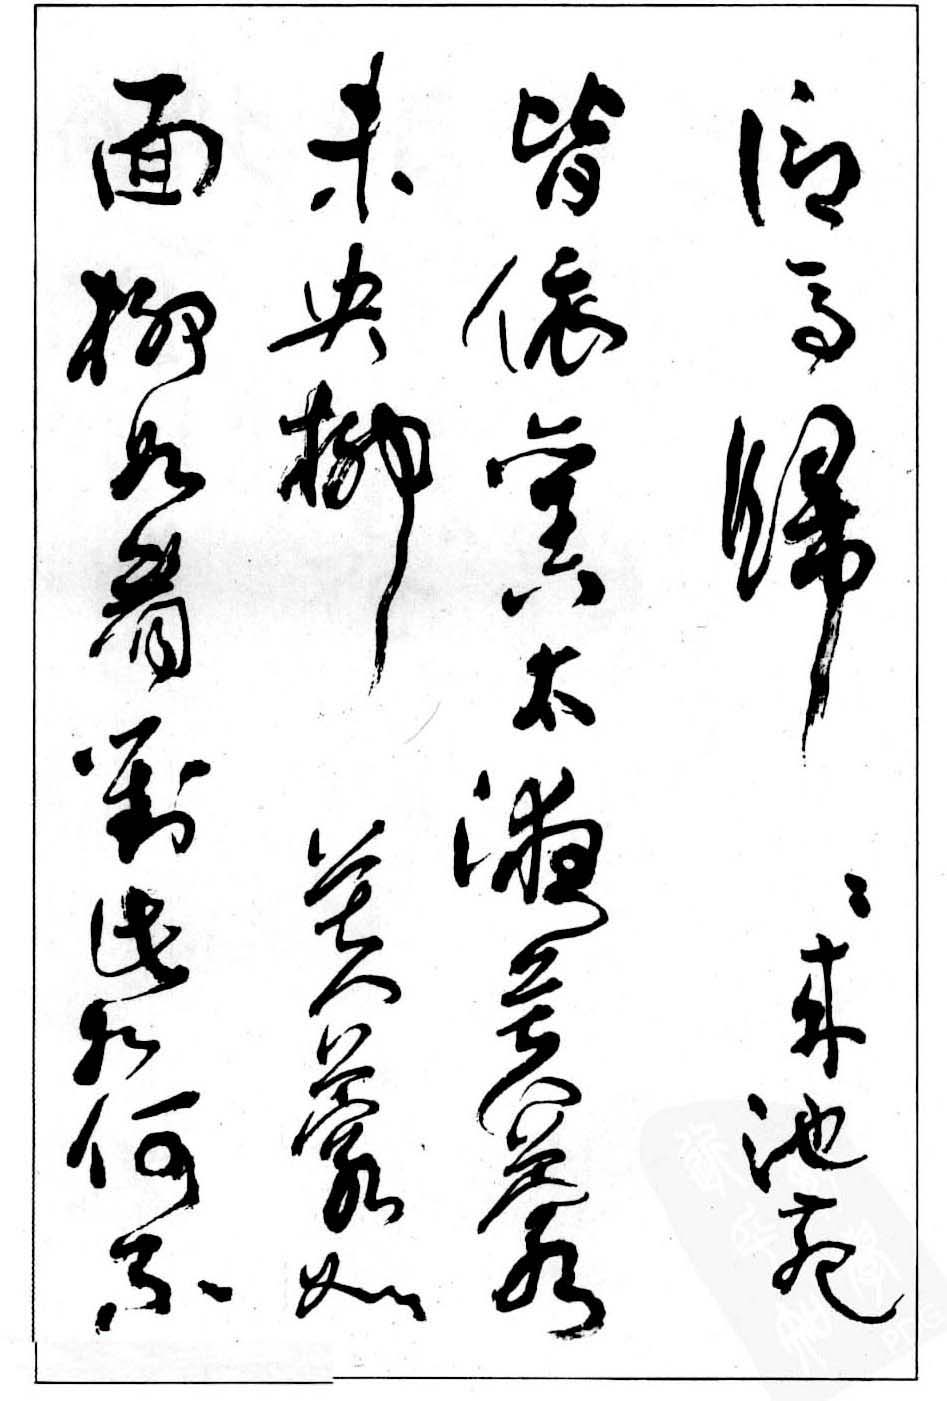 信馬歸〻來池苑
皆依舊太液芙蓉
未央柳芙蓉如
面柳如眉對此如何不